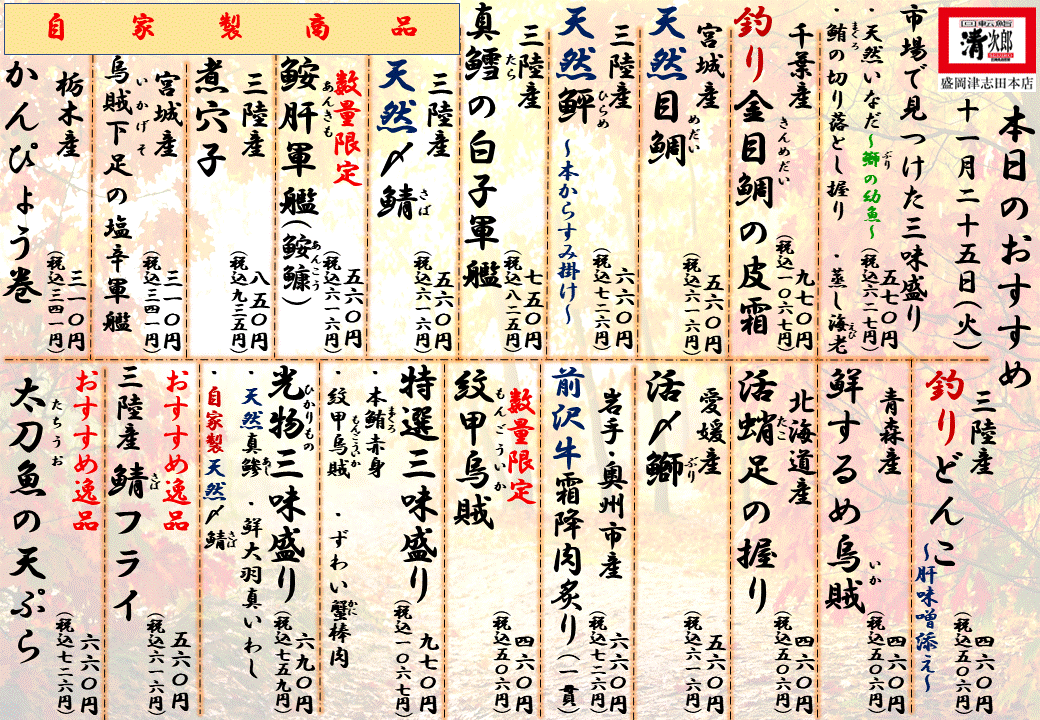 回転鮨
清次郎
盛岡津志田本店
本日のおすすめ
十一月二十五日(火)
市場で見つけた三味盛り
・天然いなだ~鰤の幼魚~
ぶり
・鮪の切り落とし握り
まぐろ
・蒸し海老
えび
五七〇円
(税込六二七円)
千葉産
釣り金目鯛の皮霜
きんめだい
九七〇円
(税込一〇六七円)
宮城産
天然目鯛
めだい
五六〇円
(税込六一六円)
三陸産
天然鮃
ひらめ
~本からすみ掛け~
六六〇円
(税込七二六円)
三陸産
真鱈の白子軍艦
たら
七五〇円
(税込八二五円)
自家製商品
三陸産
天然〆鯖
さば
五六〇円
(税込六一六円)
数量限定
鮟肝軍艦(鮟鱇)
あんきも
あんこう
五六〇円
(税込六一六円)
三陸産
煮穴子
八五〇円
(税込九三五円)
宮城産
烏賊下足の塩辛軍艦
いかげそ
三一〇円
(税込三四一円)
栃木産
かんぴょう巻
三一〇円
(税込三四一円)
三陸産
釣りどんこ
~肝味噌添え~
四六〇円
(税込五〇六円)
青森産
鮮するめ烏賊
いか
四六〇円
(税込五〇六円)
北海道産
活蛸足の握り
たこ
四六〇円
(税込五〇六円)
愛媛産
活〆鰤
ぶり
五六〇円
(税込六一六円)
岩手・奥州市産
前沢牛霜降肉炙り(一貫)
六六〇円
(税込七二六円)
数量限定
紋甲烏賊
もんごういか
四六〇円
(税込五〇六円)
特選三味盛り
・本鮪赤身
まぐろ
・紋甲烏賊
もんごういか
・ずわい蟹棒肉
かに
九七〇円
(税込一〇六七円)
光物三味盛り
ひかりもの
・天然真鯵
あじ
・鮮大羽真いわし
・自家製天然〆鯖
さば
六九〇円
(税込七五九円)
おすすめ逸品
三陸産鯖フライ
さば
五六〇円
(税込六一六円)
おすすめ逸品
太刀魚の天ぷら
たちうお
六六〇円
(税込七二六円)